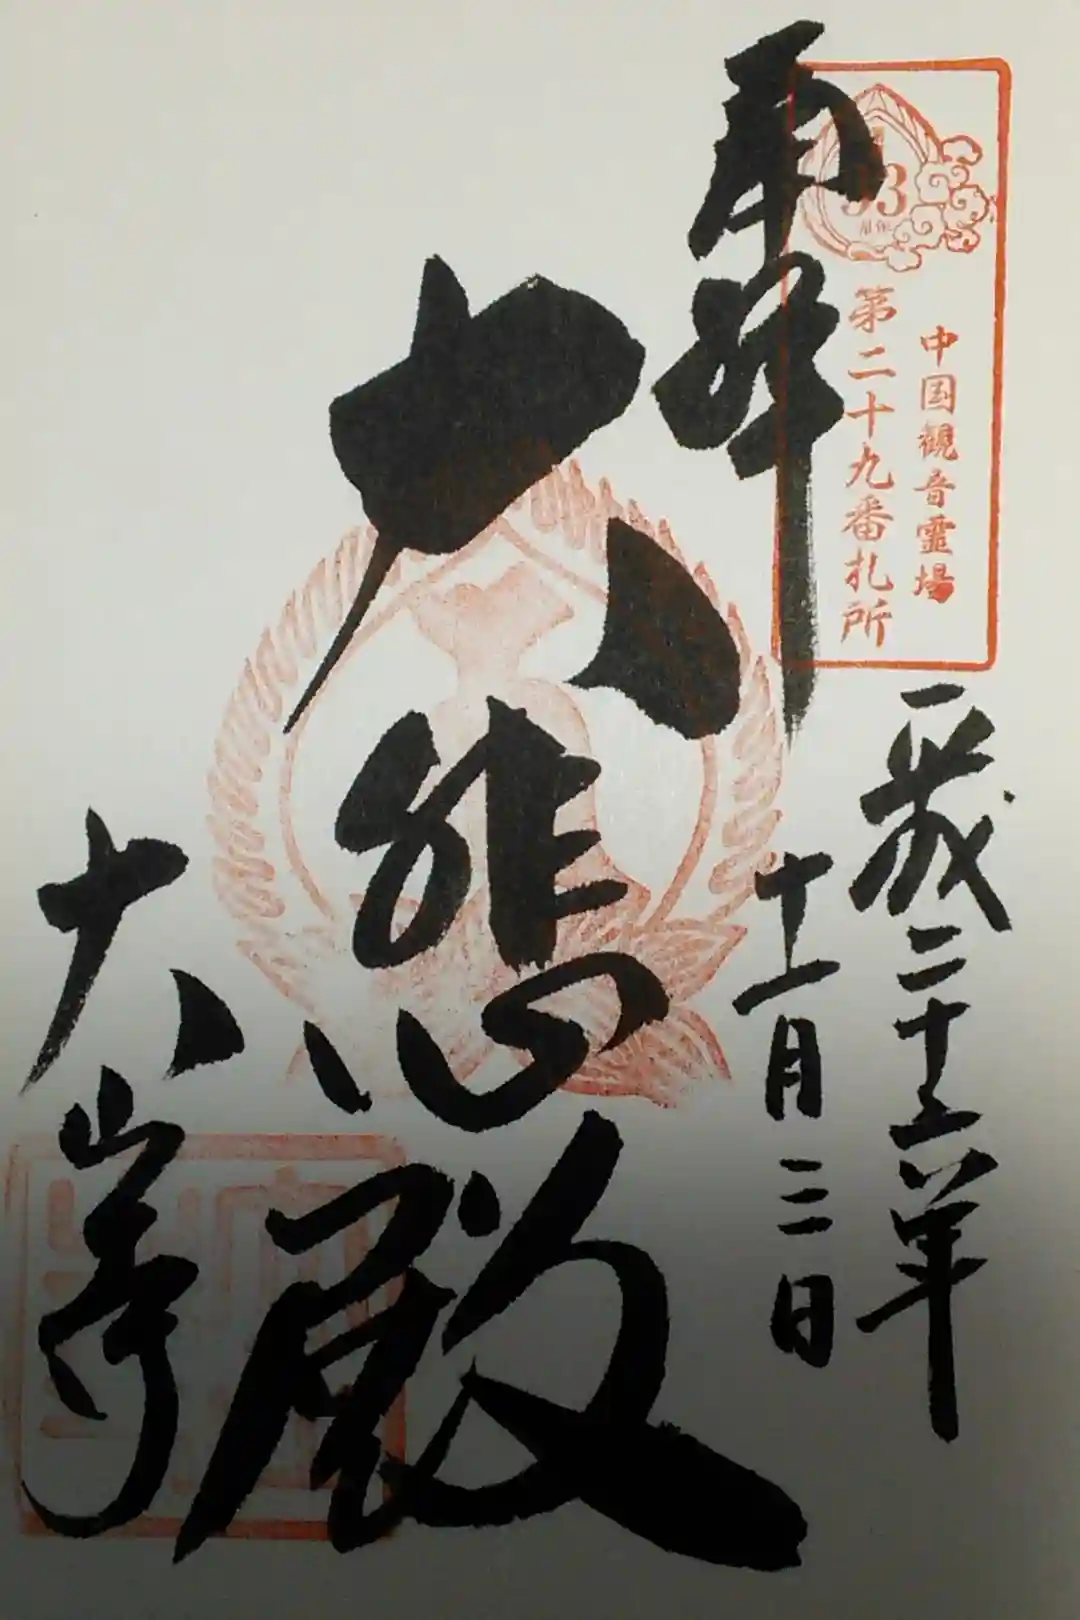 中国観音霊場
第二十九番札所
33
再拝
平成二十五年
十一月三日
大悲殿
大山寺